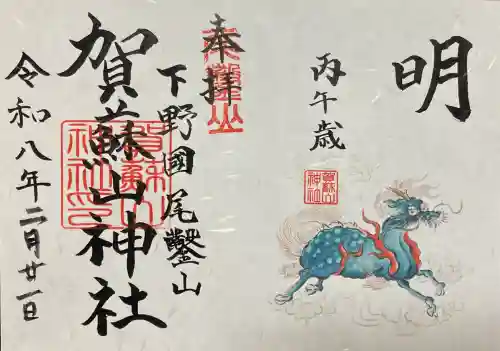 明
丙午歳
奉拝
下野國尾鑿山
賀蘓山神社
令和八年二月廿一日